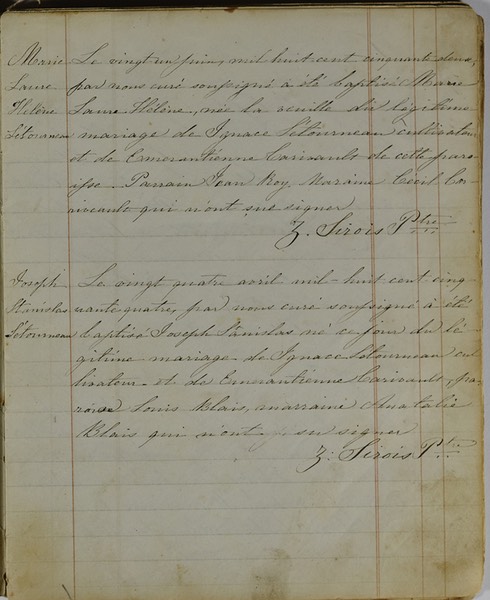 Marie Le vingt un juin, mil huit cent cinquante deux,
Laure par nous curé soussigné a été baptisé Marie
Hélène Laure Hélène, née la veuille du légitime
Létourneau mariage de Ignace Létourneau cultivateur
et de Emerantienne Carivault de cette paro
isse. Parrain Jean Roy, Maraine Cécil Co
riveault qui n'ont sus signer
Z. Sirois Ptre
Joseph Le vingt quatre avril mil-huit cent cinq
Stanislas uante quatre, par nous curé soussigné a été
Létourneau baptisé Joseph Stanislas né ce jour du lé
gitime mariage de Ignace Létourneau cul
tivateur et de Emerantienne Carivault, par
rain Louis Blais, marraine Anatalie
Blais qui n'ont su signer
Z. Sirois Ptre